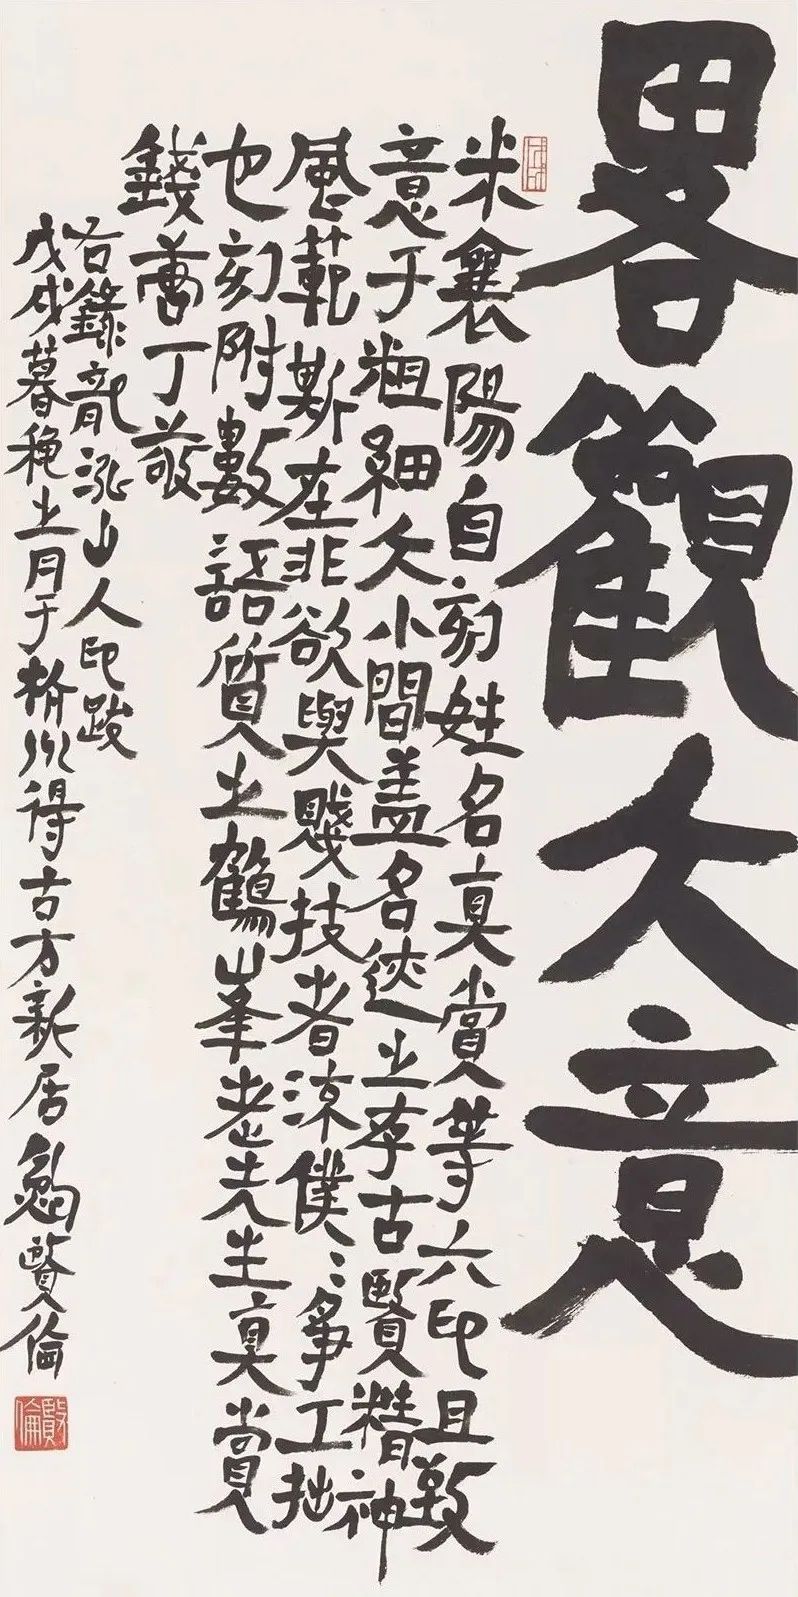 畧觀大意
米襄陽自刻姓名真賞等六印且致
意于粗細大小間蓋名迹之存古賢精神
風範斯在非欲與賤技者流僕〻爭工拙
也刻附數語質之鶴峯老先生真賞
錢唐丁敬
右錄龍泓山人印跋
戊戌暮穐之月于州得古方新居賢倫
賢倫